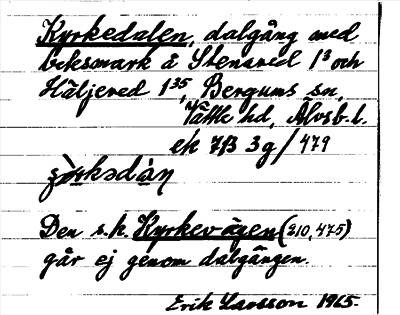 Kyrkedalen, dalgång med
beksmark å Stenared 1³ och
Häljered 1³⁵, Bergums sn,
Vättle hd, Älvsb. l.
ek 7B 3g/479
Den s.k. Kyrkevägen (210,475)
går ej genom dalgången.
Erik Larsson 1965.